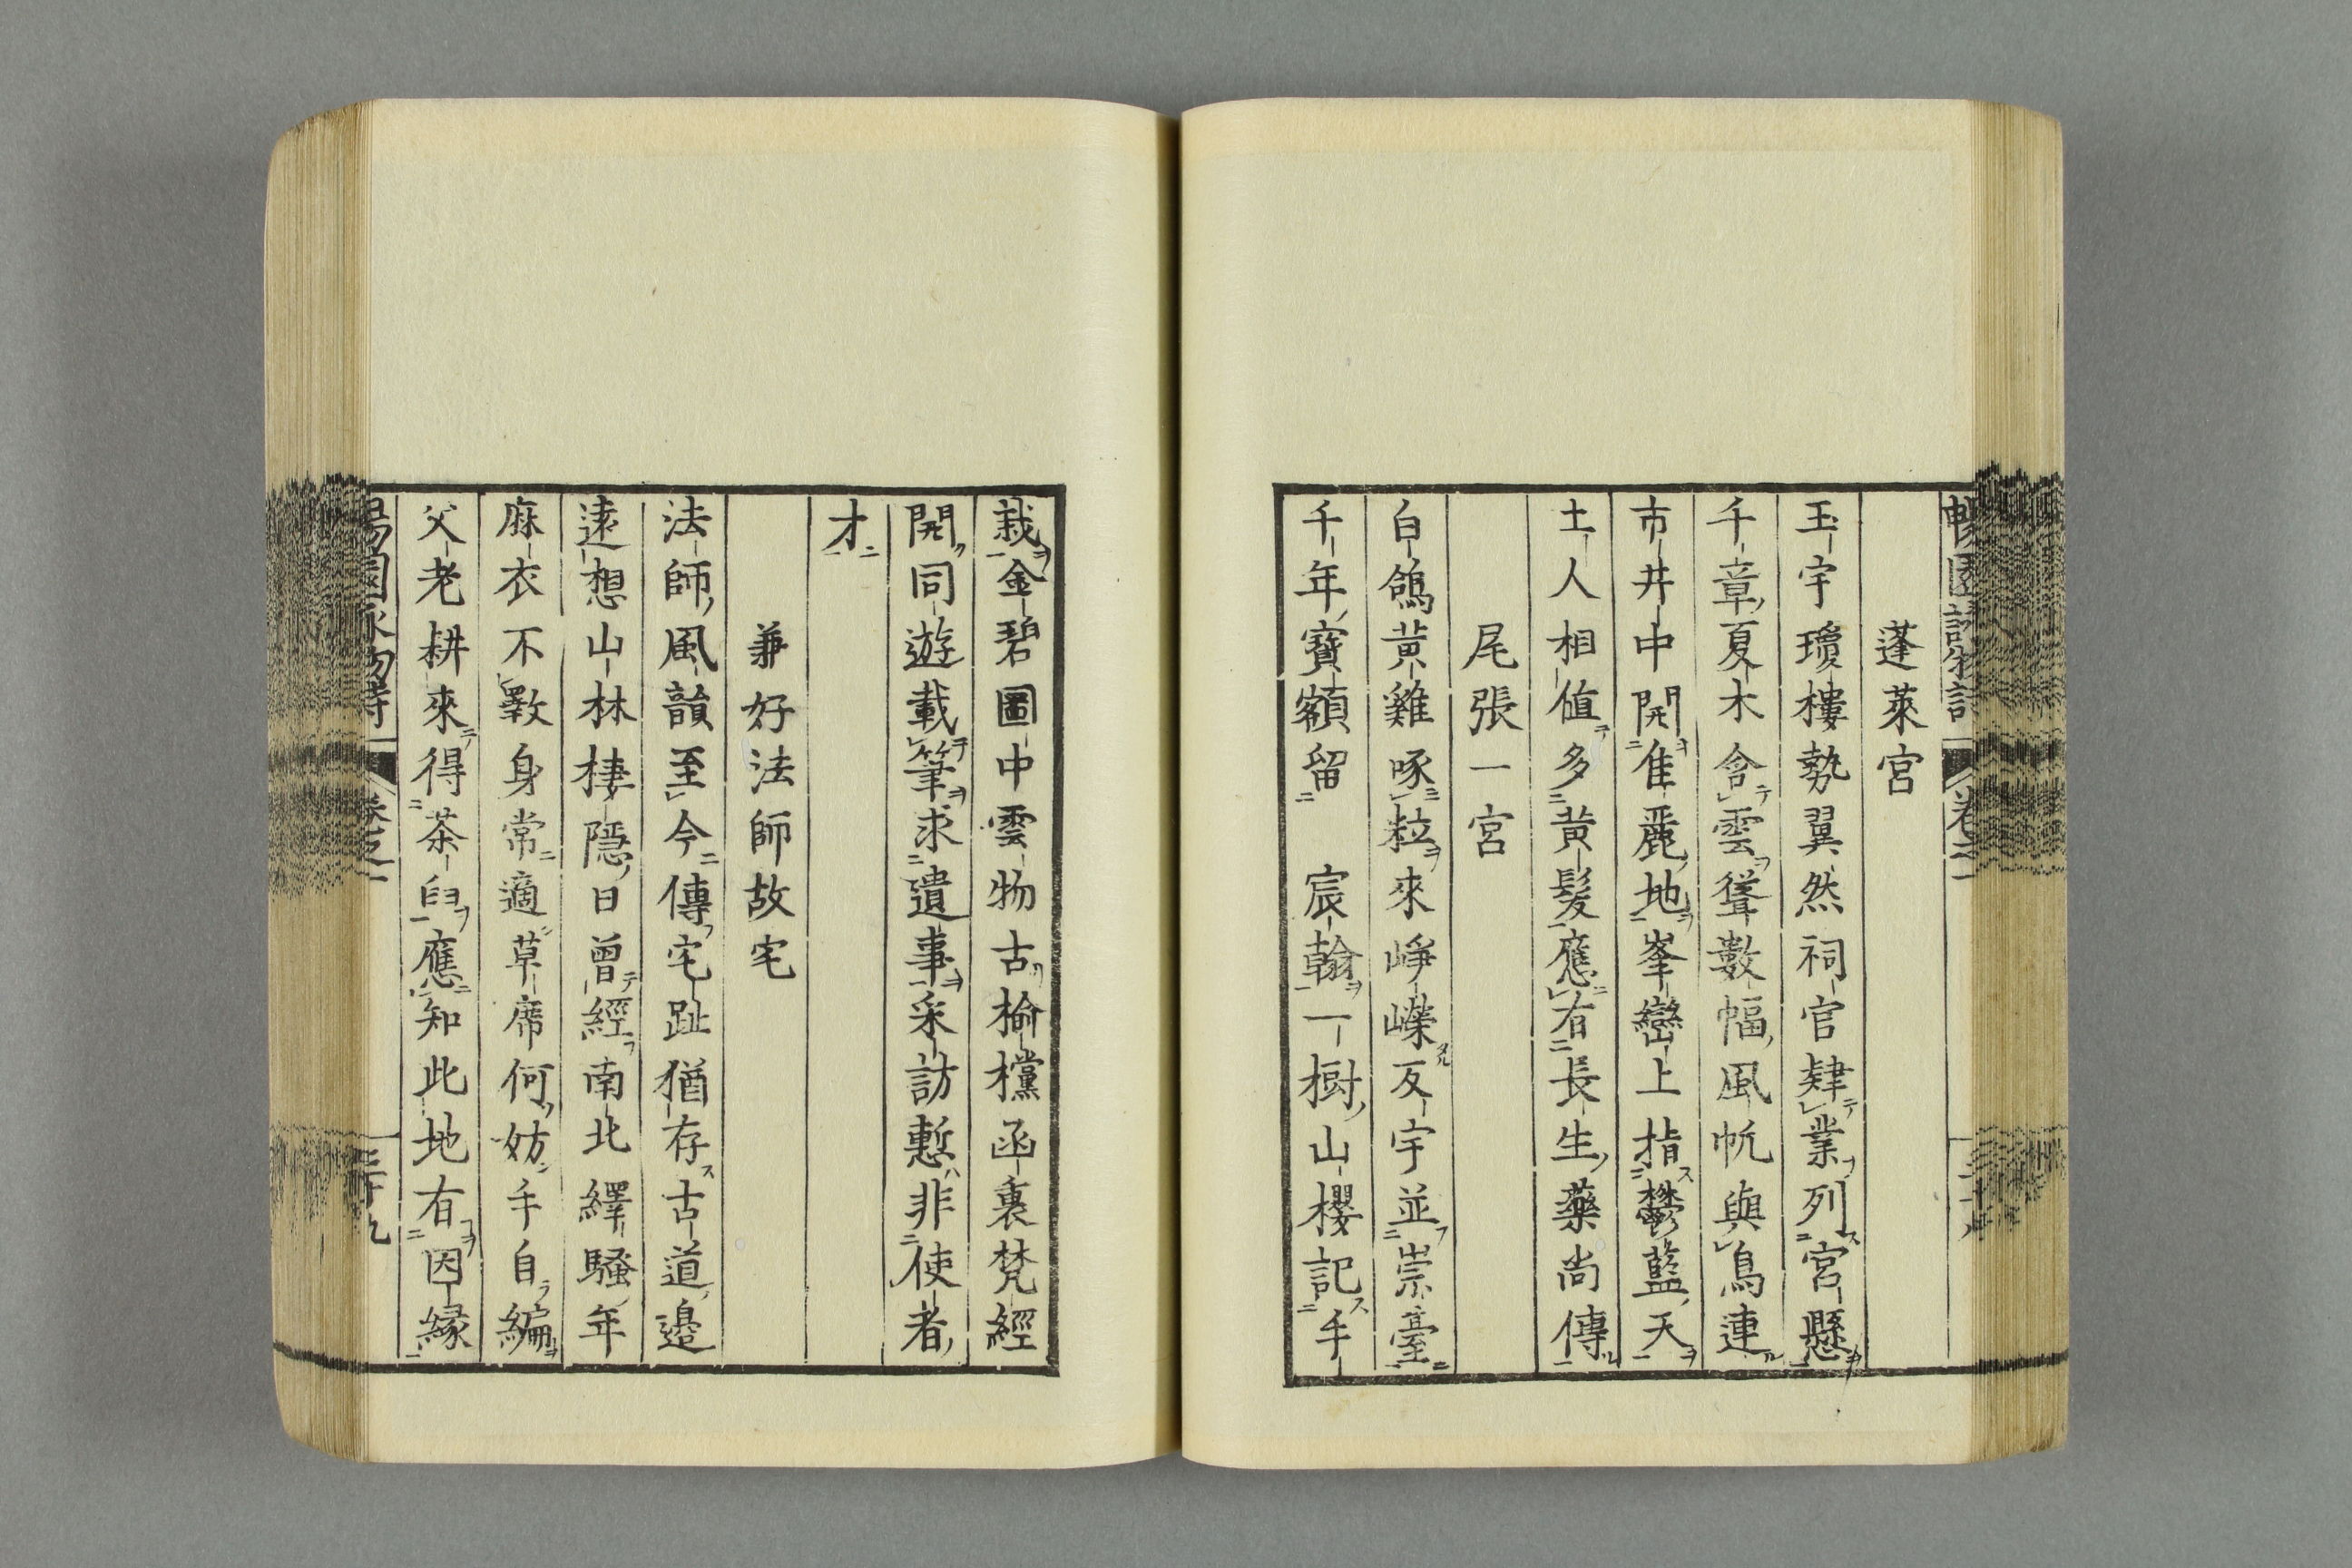 蓬萊宮
玉宇瓊樓勢翼然祠官肄業列宮懸
千章夏木含雲聳數幅風帆與鳥連
市井中開佳麗地峯巒上指鬱藍天
土人相値多黄髮應有長生藥尚傳
尾張一宮
白鴿黄雞啄粒來崢嶸反宇並崇臺
千年寶額留　宸翰一樹山櫻記手
栽金碧圖中雲物古楡欓函裏梵經
開同遊載筆求遺事采訪慙非使者
才
兼好法師故宅
法師風韻至今傳宅趾猶存古道邊
遠想山林棲隱日曾經南北繹騷年
麻衣不斁身常適草席何妨手自編
父老耕來得茶臼應知此地有因縁
三十九